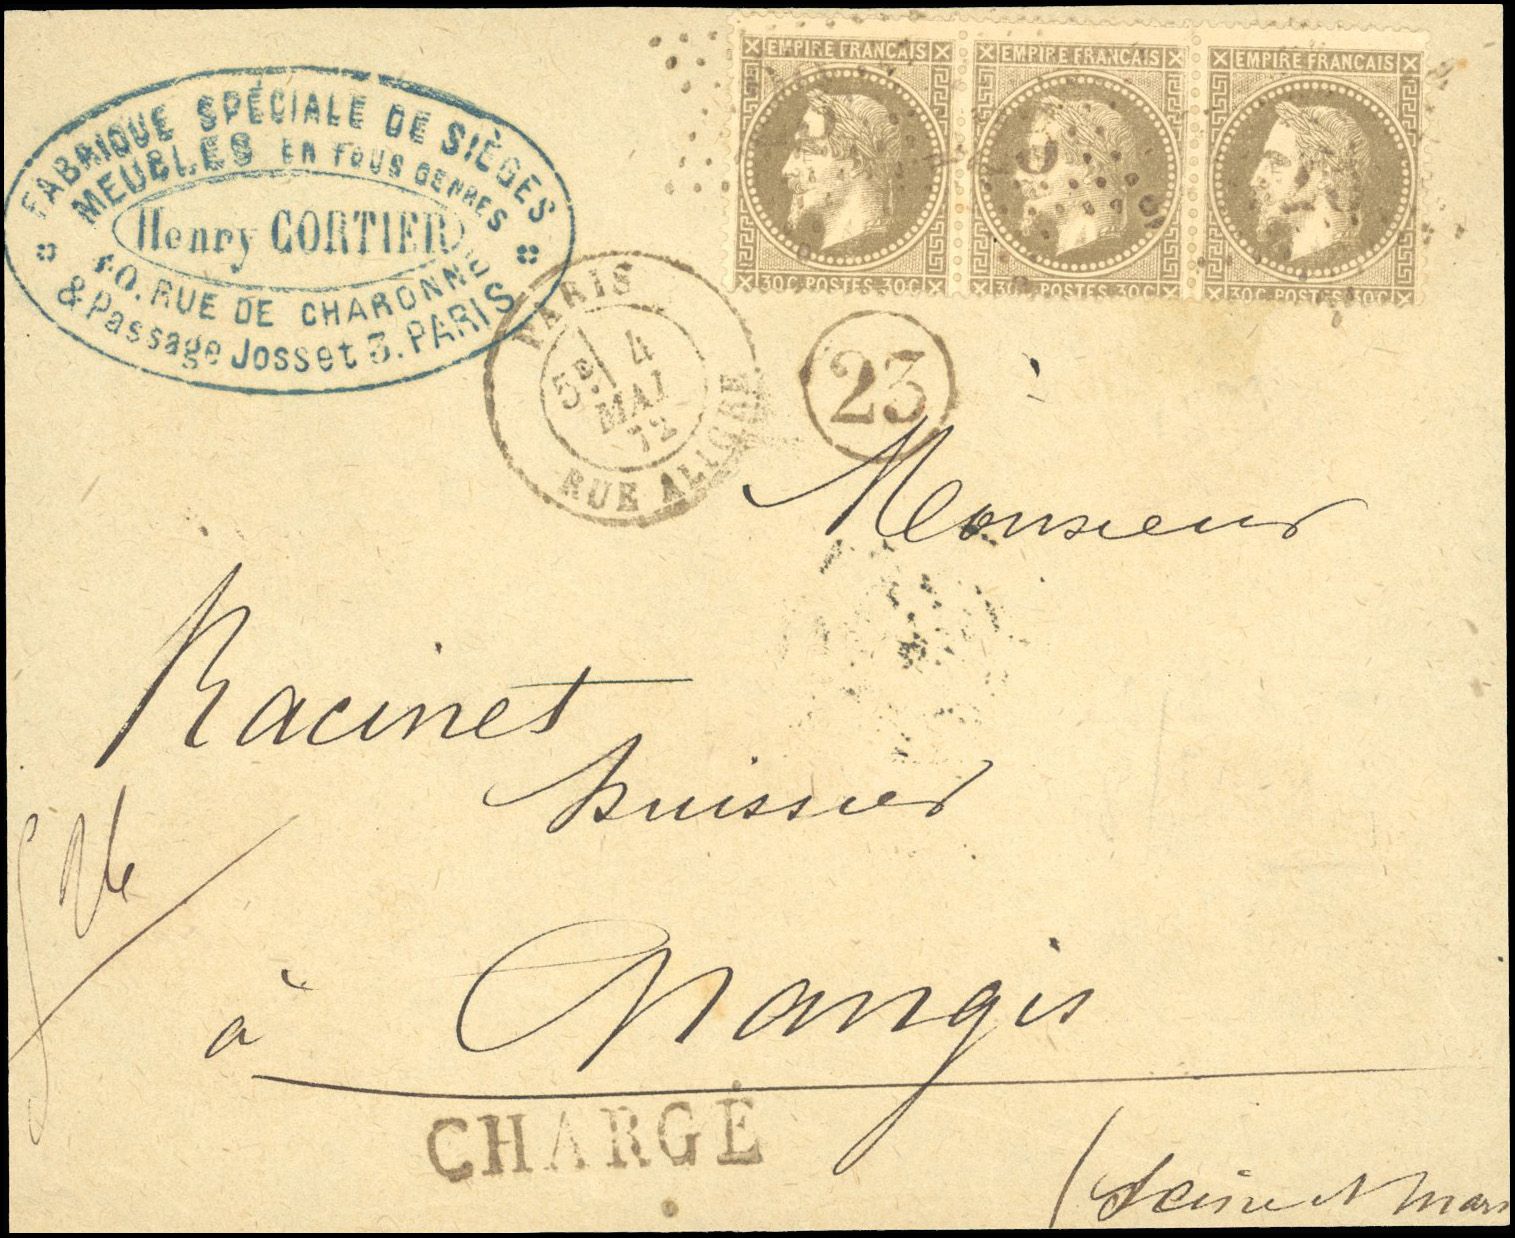 FABRIQUE SPÉCIALE DE SIÈGES
MEUBLES EN TOUS GENRES
Henry CORTIER
40. RUE DE CHARONNE
& Passage Josset 3. PARIS
EMPIRE FRANCAIS EMPIRE FRANCAIS EMPIRE FRANCAIS
30C POSTES 30C 30C POSTES 30C 30C POSTES 30C
PARIS
5E 4
MAI
72
RUE ALIGRE
23
Monsieur
Racinet
huissier
à Nangis
CHARGÉ
(Seine et Mar